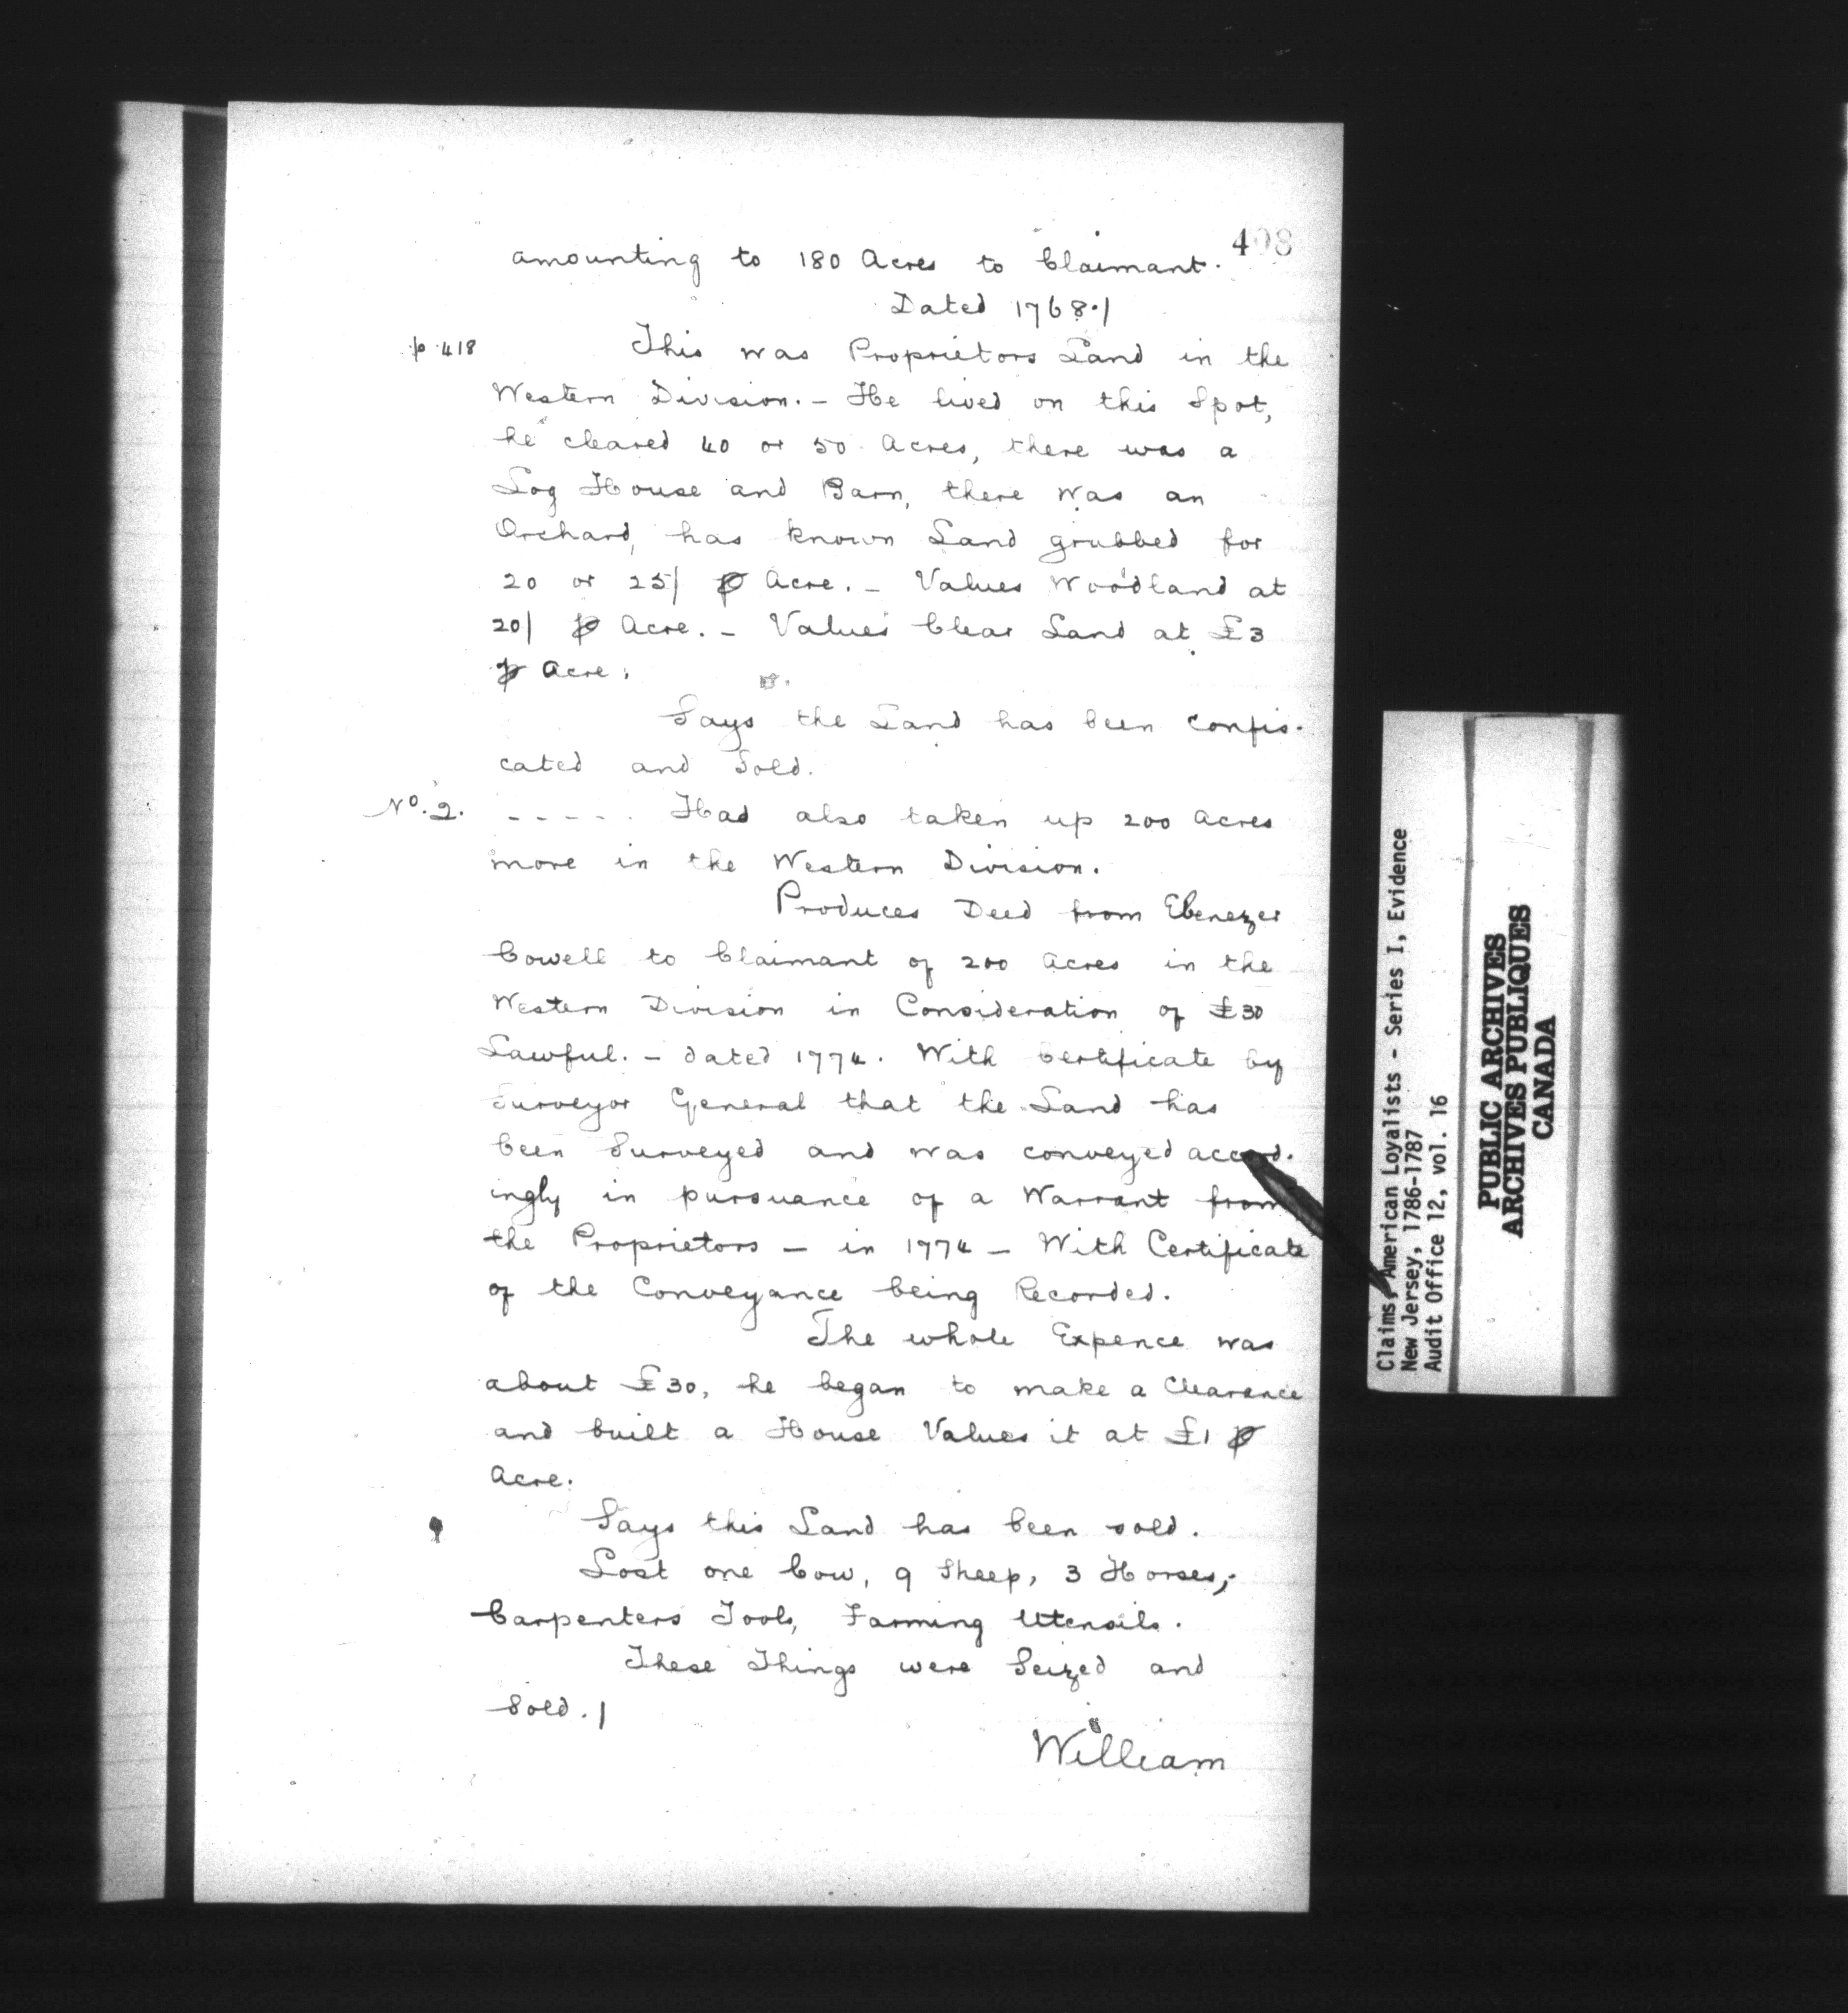 408
amounting to 180 Acres to Claimant.
Dated 1768./
p. 418
This was Proprietors Land in the
Western Division. - He lived on this Spot,
he cleared 40 or 50 Acres, there was a
Log House and Barn, there was an
Orchard, has known Land grubbed for
20 or 25/ ⅌ Acre. - Values Woodland at
20/ ⅌ Acre. - Values Clear Land at £3
⅌ Acre.
Says the Land has been confis-
cated and Sold.
No. 2. - - - - - Had also taken up 200 Acres
more in the Western Division.
Produces Deed from Ebenezer
Cowell to Claimant of 200 Acres in the
Western Division in Consideration of £30
Lawful. - dated 1774. With Certificate by
Surveyor General that the Land has
been Surveyed and was conveyed accord-
ingly in pursuance of a Warrant from
the Proprietors - in 1774 - With Certificate
of the Conveyance being Recorded.
The whole Expence was
about £30, he began to make a Clearance
and built a House Values it at £1 ⅌
Acre.
Says this Land has been sold.
Lost one Cow, 9 Sheep, 3 Horses,
Carpenters Tools, Farming Utensils.
These Things were Seized and
Sold./
William
Claims, American Loyalists - Series I, Evidence
New Jersey, 1786-1787
Audit Office 12, vol. 16
PUBLIC ARCHIVES
ARCHIVES PUBLIQUES
CANADA